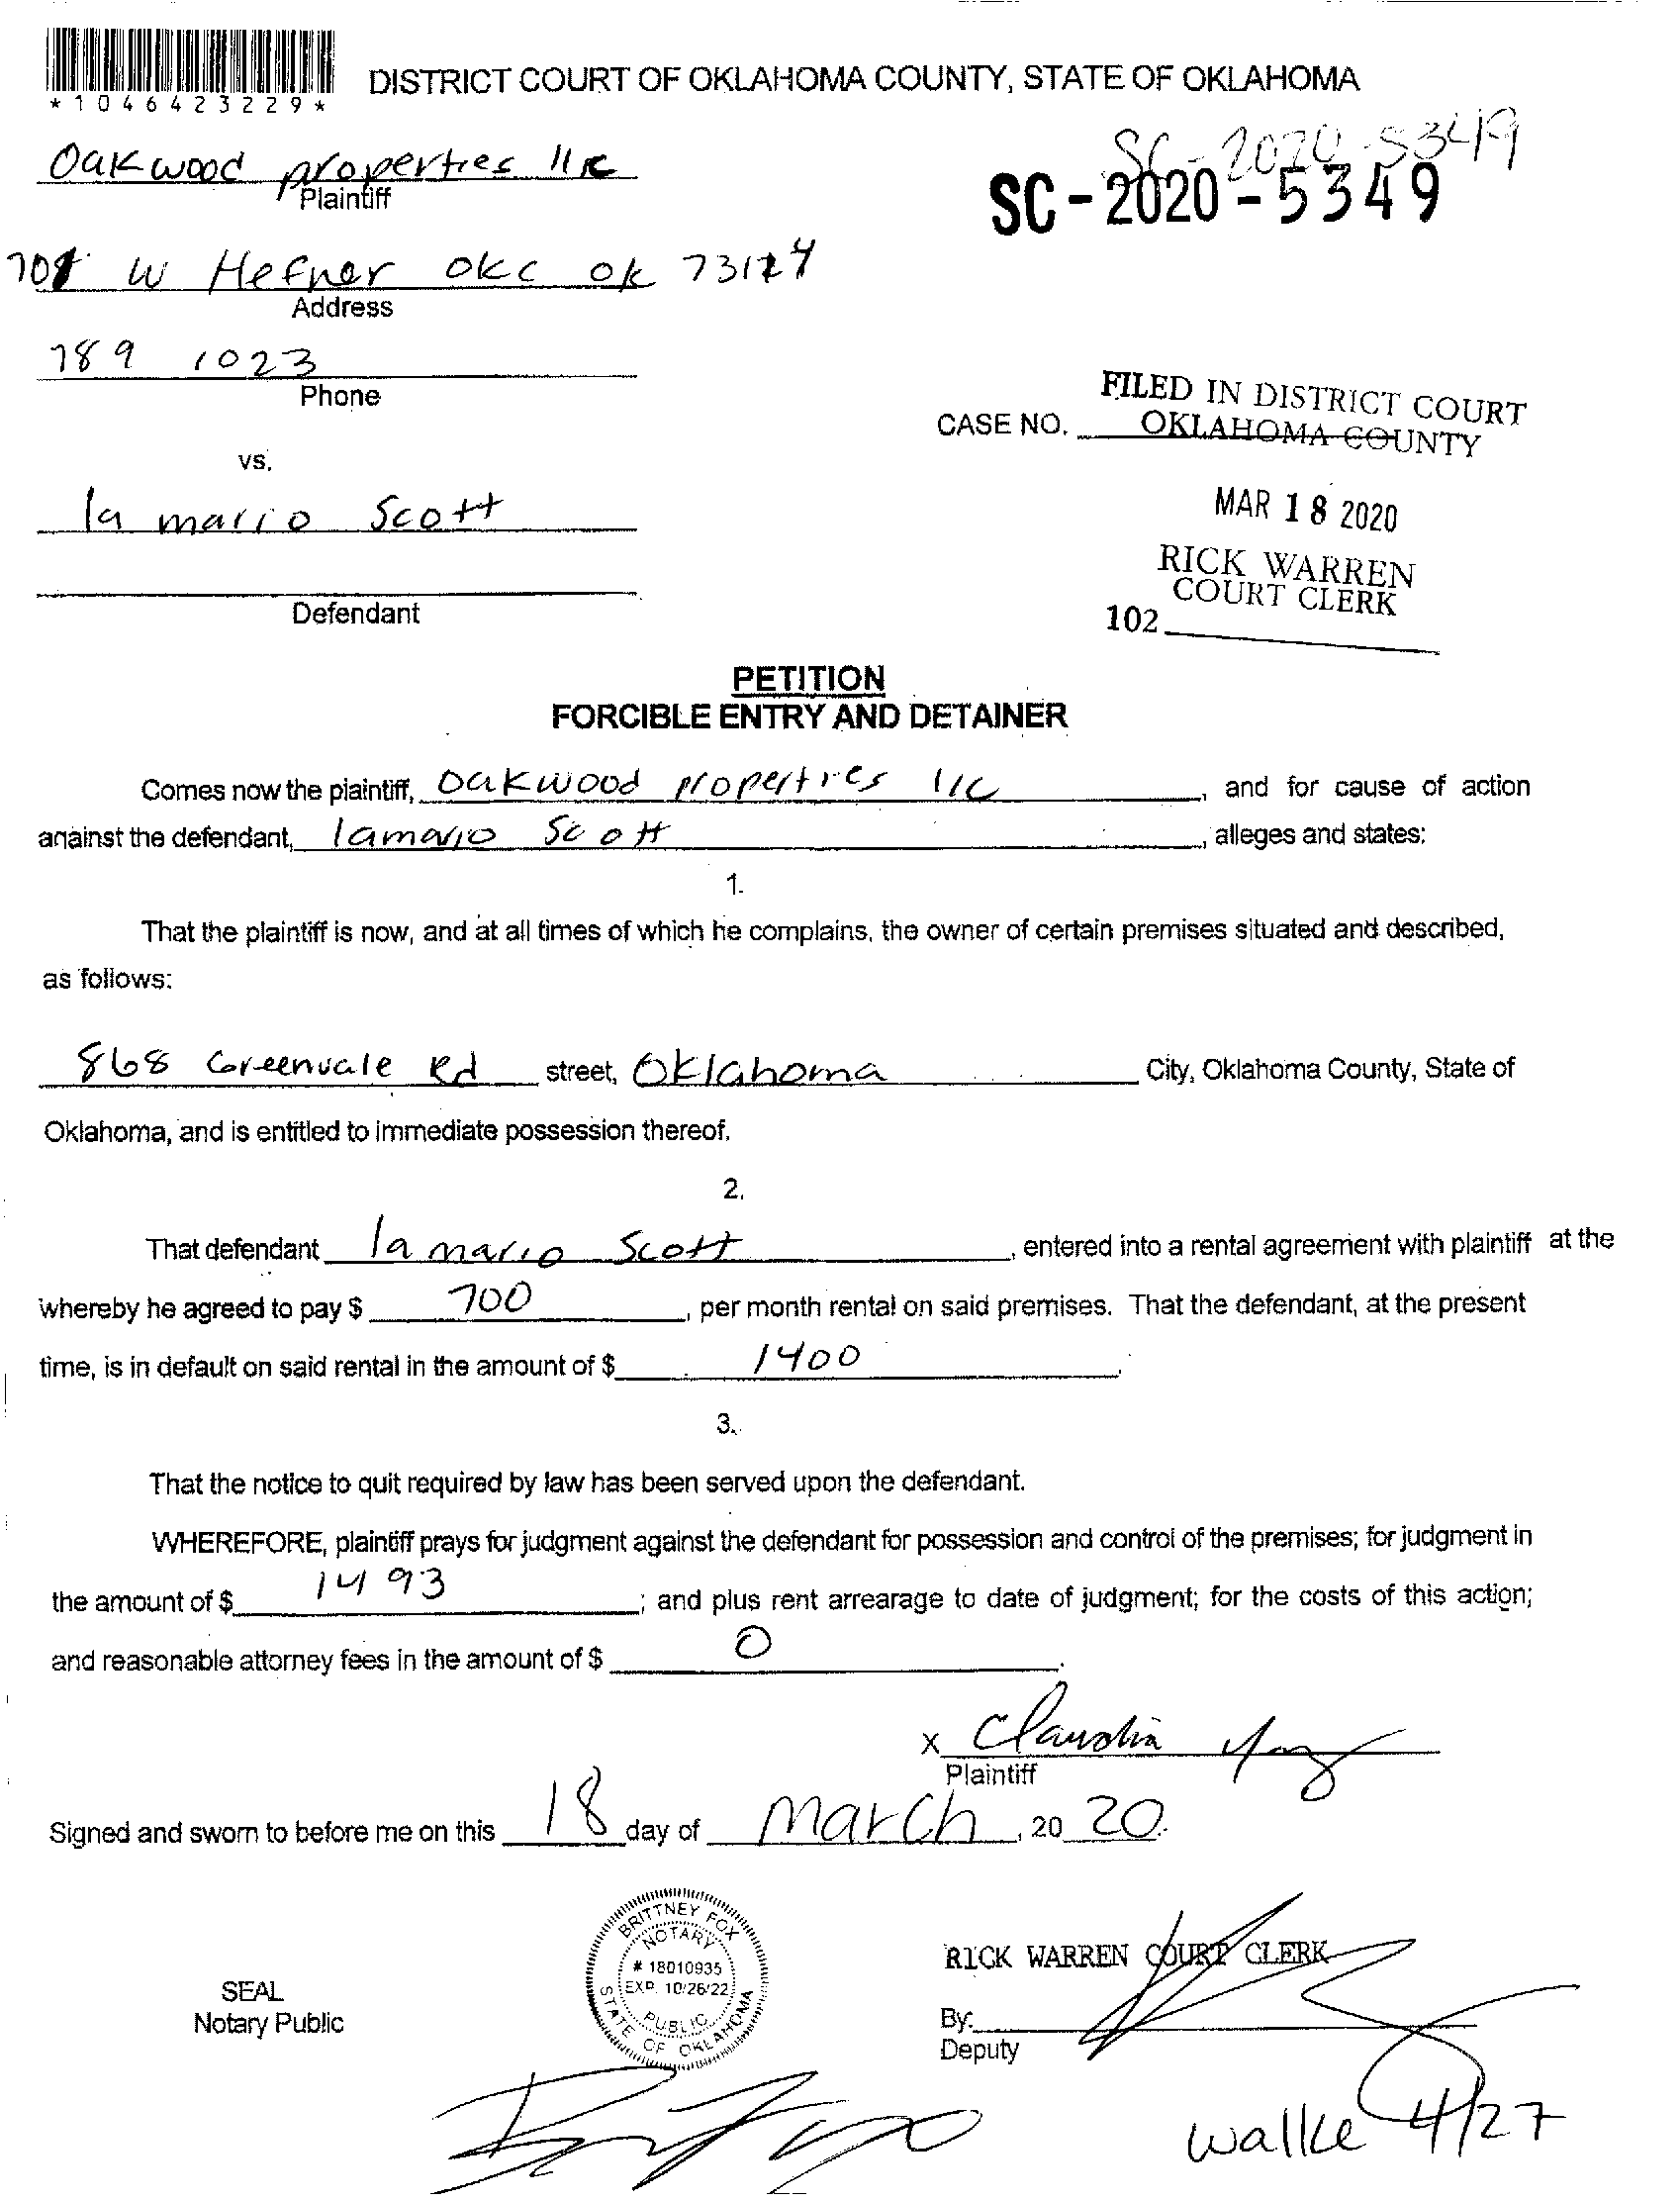 *1046423229*
DISTRICT COURT OF OKLAHOMA COUNTY, STATE OF OKLAHOMA
SC-2020-5349
Oakwood properties llc
Plaintiff
SC-2020-5349
W Hefner OKC OK
Address
789 1023
Phone
FILED IN DISTRICT COURT
CASE NO.
OKLAHOMA COUNTY
vs.
la mario Scott
MAR 18 2020
RICK WARREN
COURT CLERK
Defendant
102
PETITION
FORCIBLE ENTRY AND DETAINER
Comes now the plaintiff, Oakwood properties llc, and for cause of action
against the defendant, lamario Scott, alleges and states:
1.
That the plaintiff is now, and at all times of which he complains, the owner of certain premises situated and described,
as follows:
868 Greenvale Rd street, Oklahoma City, Oklahoma County, State of
Oklahoma, and is entitled to immediate possession thereof.
2.
That defendant la mario Scott, entered into a rental agreement with plaintiff at the
whereby he agreed to pay $ 700, per month rental on said premises. That the defendant, at the present
time, is in default on said rental in the amount of $ 1400.
3.
That the notice to quit required by law has been served upon the defendant.
WHEREFORE, plaintiff prays for judgment against the defendant for possession and control of the premises; for judgment in
the amount of $ 1493; and plus rent arrearage to date of judgment; for the costs of this action;
and reasonable attorney fees in the amount of $ 0.
x Claudia
Plaintiff
Signed and sworn to before me on this 18 day of March, 20 20.
BRITTNEY FOX
NOTARY
# 18010935
EXP. 10/26/22
PUBLIC
STATE OF OKLAHOMA
SEAL
Notary Public
RICK WARREN COURT CLERK
By:
Deputy
walke 4/27